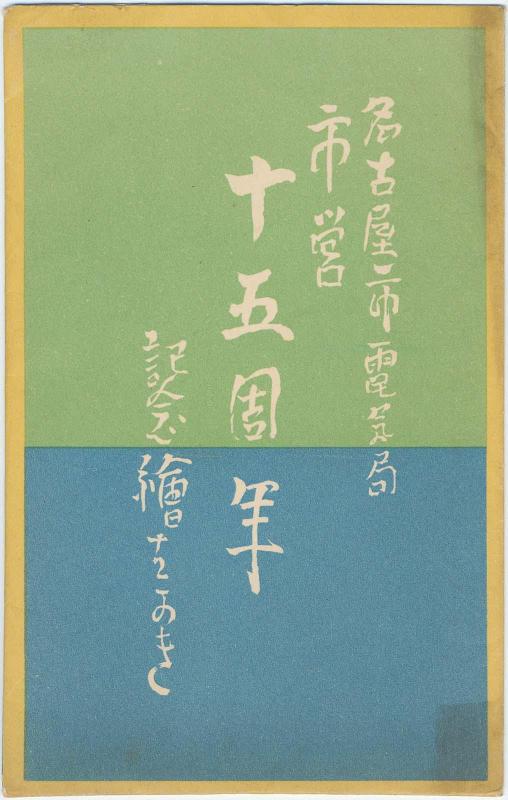 名古屋市電氣局
市営
十五周年
記念繪はかき